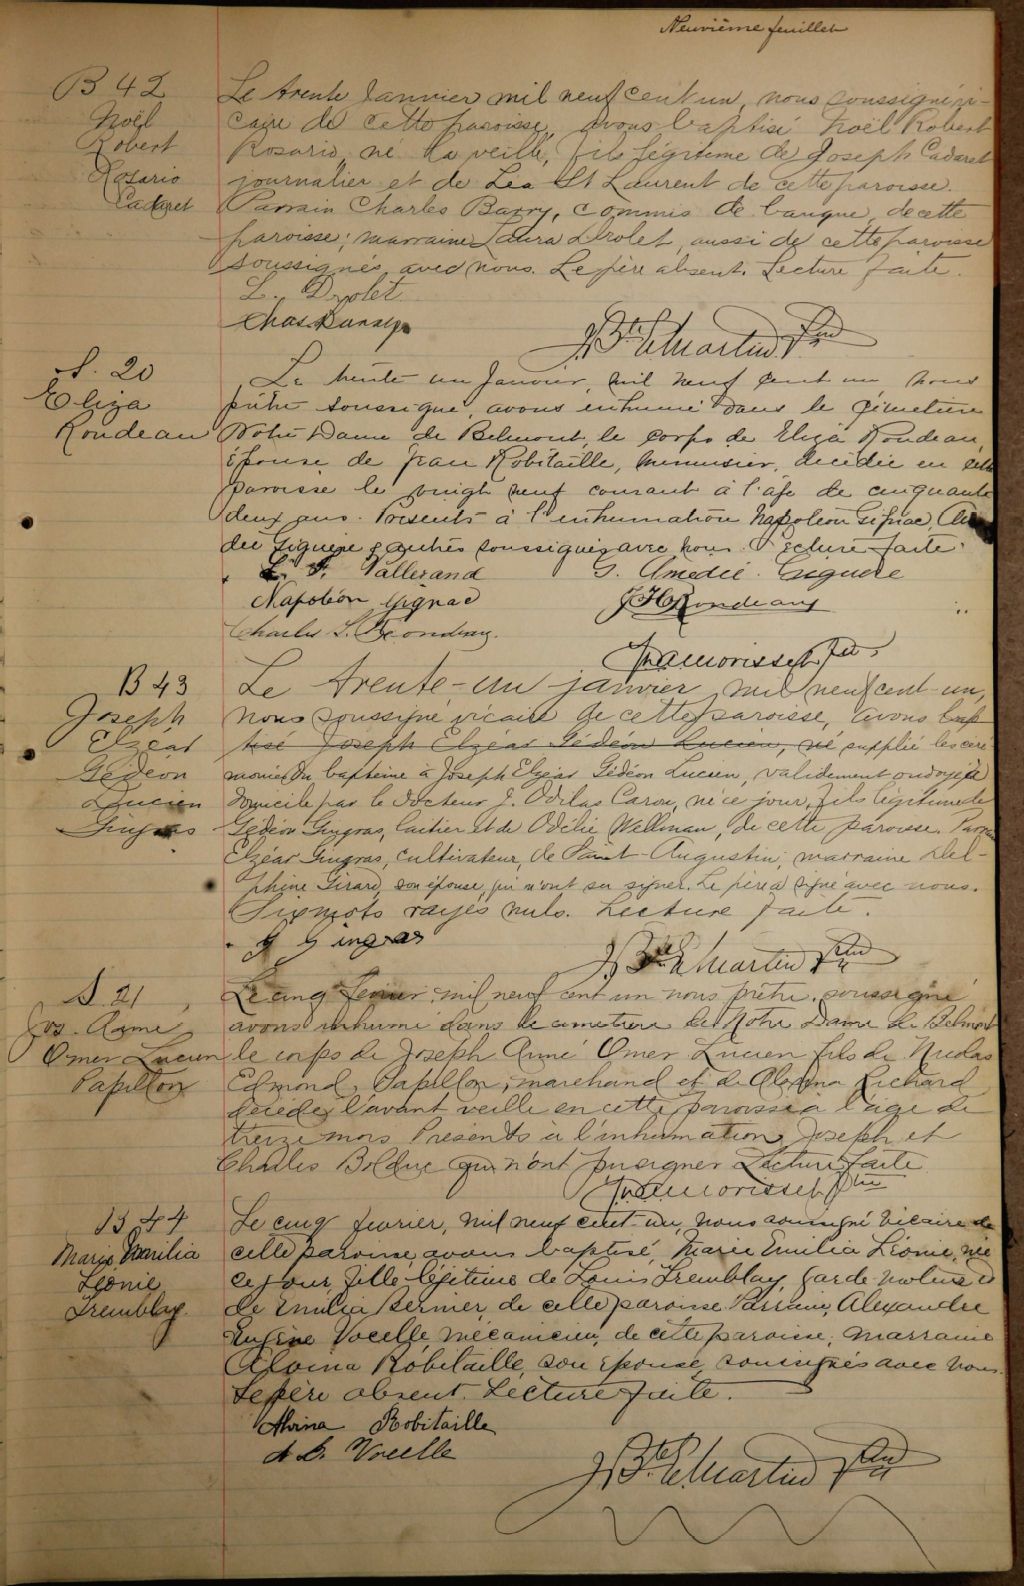 Neuvième feuillet
B 42
Noël
Robert
Rosario
Cadaret
Le trente Janvier mil neuf cent un, nous soussigné vi-
caire de cette paroisse, avons baptisé Noël Robert
Rosario, né la veille, fils légitime de Joseph Cadaret
journalier et de Léa St Laurent de cette paroisse.
Parrain Charles Barry, commis de banque, de cette
paroisse; marraine Laura Drolet, aussi de cette paroisse
soussignés avec nous. Le père absent. Lecture faite.
L. Drolet
Chas Barry
J. Bte E. Martin Ptre
S. 20
Eliza
Rondeau
Le trente un Janvier, mil neuf cent un, nous
prêtre soussigné, avons inhumé dans le cimetière
Notre Dame de Belmont, le corps de Eliza Rondeau,
épouse de Jean Robitaille, menuisier, décédée en cette
paroisse le vingt neuf courant à l'âge de cinquante
deux ans. Présents à l'inhumation Napoléon Gignac,
dée Giguère & autres soussignés avec nous. Lecture faite.
Vallerand
G. Amedée Giguère
Napoléon Gignac
J H Rondeau
Charles
Morisset Ptre
B 43
Joseph
Elzéar
Gédéon
Lucien
Gingras
Le trente-un janvier, mil neuf cent-un,
nous soussigné vicaire de cette paroisse, avons bap
tisé Joseph Elzéar Gédéon Lucien, né supplié les céré
monies du baptême à Joseph Elzéar Gédéon Lucien, validement ondoyé à
domicile par le docteur J. Odilas Caron, né ce jour, fils légitime de
Gédéon Gingras, laitier et de Odélie Wellman, de cette paroisse. Parrain
Elzéar Gingras, cultivateur, de Saint-Augustin; marraine Del-
phine Girard, son épouse, qui n'ont su signer. Le père a signé avec nous.
Six mots rayés nuls. Lecture faite.
G Gingras
J. Bte E. Martin Ptre
S 21
Jos. Aimé
Omer Lucien
Papillon
Le cinq fevrier mil neuf cent un nous prêtre soussigné
avons inhumé dans le cimetière de Notre Dame de Belmont
le corps de Joseph Aimé Omer Lucien fils de
Edmond Papillon, marchand et de Richard
décédé l'avant veille en cette paroisse à l'âge de
treize mois Présents à l'inhumation Joseph et
Charles Bolduc qui n'ont pu signer Lecture faite
Morisset Ptre
B 44
Marie Emilia
Léonie
Tremblay
Le cinq fevrier, mil neuf cent-un, nous soussigné vicaire de
cette paroisse avons baptisé, Marie Emilia Léonie, née
ce jour, fille légitime de Louis Tremblay, garde-moteur et
de Emilia Bernier, de cette paroisse. Parrain, Alexandre
Eugène Vocelle, mécanicien, de cette paroisse, marraine
Alvina Robitaille, son épouse, soussignés avec nous.
Le père absent. Lecture faite.
Alvina Robitaille
A. E. Vocelle
J. Bte E. Martin Ptre